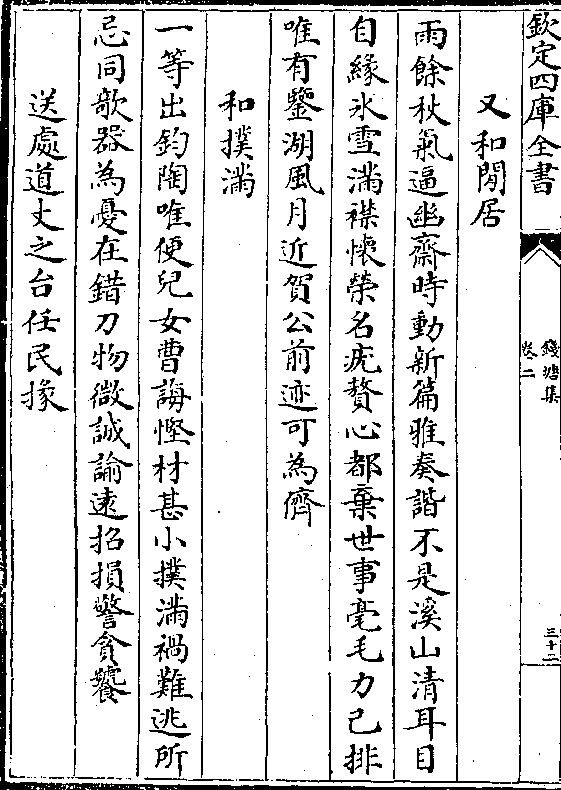 欽定四庫全書
錢塘集
卷二
三十二
又和閒居
雨餘秋氣逼幽齋時動新篇雅奏諧不是溪山清耳目
自緣氷雪滿襟懷榮名疣贅心都棄世事毫毛力已排
唯有鑒湖風月近賀公前迹可為儕
和撲滿
一等出鈞陶唯便兒女曹誨慳材甚小撲滿禍難逃所
忌同欹器為憂在錯刀物微誠諭逺招損警貪饕
送處道丈之台任民掾